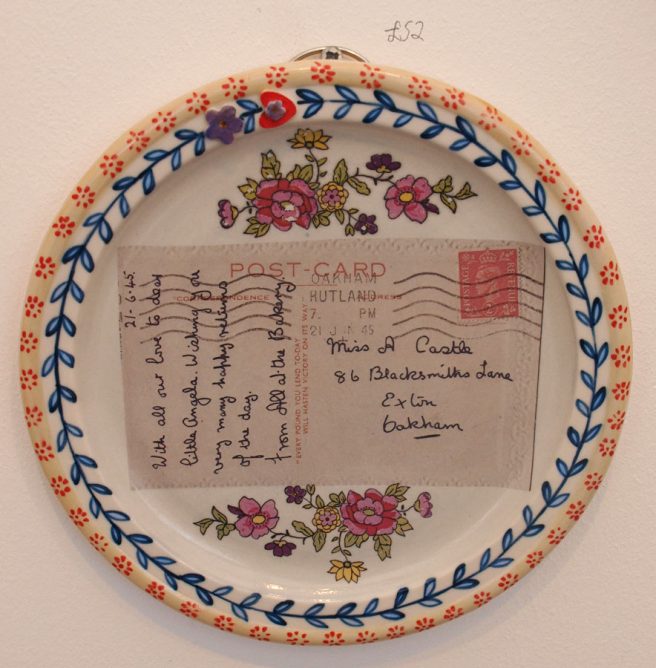 £52
POST-CARD
CORRESPONDENCE
ADDRESS
OAKHAM
RUTLAND
7. PM
21 JUN 45
POSTAGE
REVENUE
21-6-45.
With all our love to dear
little Angela. Wishing you
very many happy returns
of the day.
From All at the Bakery
"EVERY POUND YOU LEND TO-DAY
WILL HASTEN VICTORY ON ITS WAY"
Miss A Castle
86 Blacksmiths Lane
Exton
Oakham